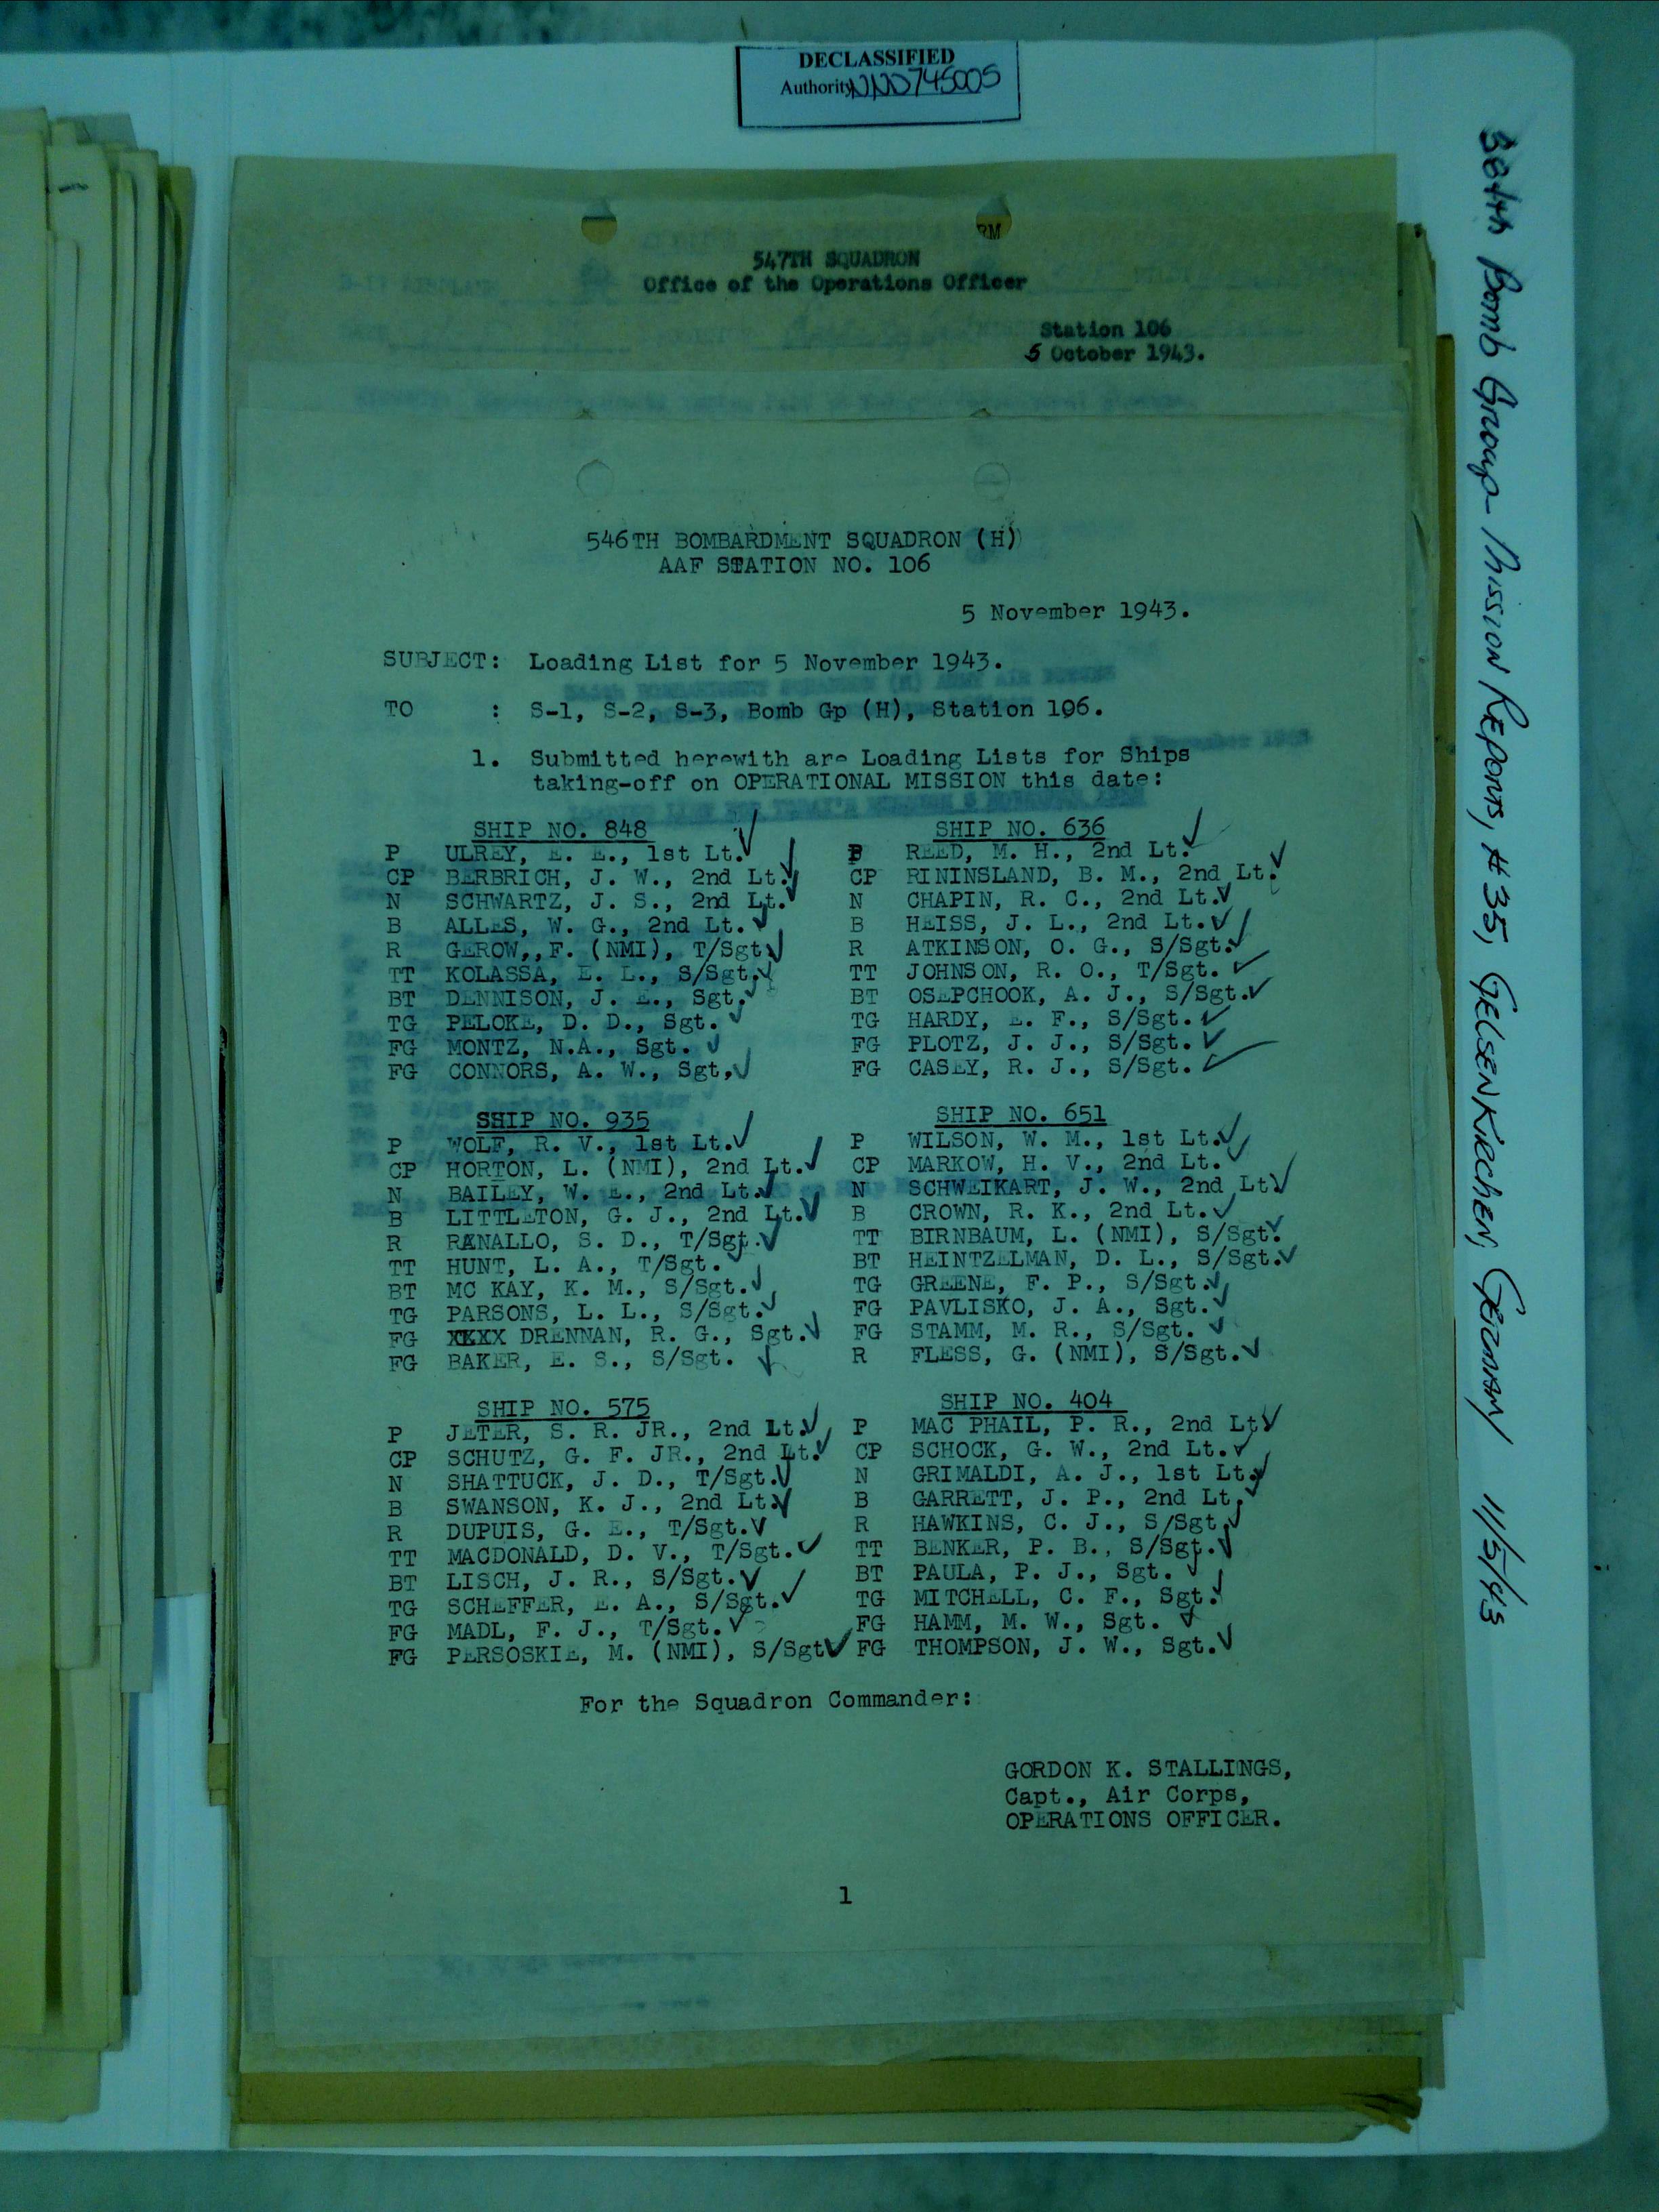 DECLASSIFIED
Authority NND745005
RM
547TH SQUADRON
Office of the Operations Officer
Station 106
5 October 1943.
546TH BOMBARDMENT SQUADRON (H)
AAF STATION NO. 106
5 November 1943.
SUBJECT: Loading List for 5 November 1943.
TO : S-1, S-2, S-3, Bomb Gp (H), Station 106.
1. Submitted herewith are Loading Lists for Ships
taking-off on OPERATIONAL MISSION this date:
SHIP NO. 848
P ULREY, E. E., 1st Lt.
CP BERBRICH, J. W., 2nd Lt.
N SCHWARTZ, J. S., 2nd Lt.
B ALLES, W. G., 2nd Lt.
R GEROW,,F. (NMI), T/Sgt
TT KOLASSA, E. L., S/Sgt.
BT DENNISON, J. E., Sgt.
TG PELOKE, D. D., Sgt.
FG MONTZ, N.A., Sgt.
FG CONNORS, A. W., Sgt,
SHIP NO. 636
P REED, M. H., 2nd Lt.
CP RININSLAND, B. M., 2nd Lt.
N CHAPIN, R. C., 2nd Lt.
B HEISS, J. L., 2nd Lt.
R ATKINSON, O. G., S/Sgt.
TT JOHNSON, R. O., T/Sgt.
BT OSEPCHOOK, A. J., S/Sgt.
TG HARDY, E. F., S/Sgt.
FG PLOTZ, J. J., S/Sgt.
FG CASEY, R. J., S/Sgt.
SHIP NO. 935
P WOLF, R. V., 1st Lt.
CP HORTON, L. (NMI), 2nd Lt.
N BAILEY, W. E., 2nd Lt.
B LITTLETON, G. J., 2nd Lt.
R RANALLO, S. D., T/Sgt.
TT HUNT, L. A., T/Sgt.
BT MC KAY, K. M., S/Sgt.
TG PARSONS, L. L., S/Sgt.
FG XXXX DRENNAN, R. G., Sgt.
FG BAKER, E. S., S/Sgt.
SHIP NO. 651
P WILSON, W. M., 1st Lt.
CP MARKOW, H. V., 2nd Lt.
N SCHWEIKART, J. W., 2nd Lt.
B CROWN, R. K., 2nd Lt.
TT BIRNBAUM, L. (NMI), S/Sgt.
BT HEINTZELMAN, D. L., S/Sgt.
TG GREENE, F. P., S/Sgt.
FG PAVLISKO, J. A., Sgt.
FG STAMM, M. R., S/Sgt.
R FLESS, G. (NMI), S/Sgt.
SHIP NO. 575
P JETER, S. R. JR., 2nd Lt.
CP SCHUTZ, G. F. JR., 2nd Lt.
N SHATTUCK, J. D., T/Sgt.
B SWANSON, K. J., 2nd Lt.
R DUPUIS, G. E., T/Sgt.
TT MACDONALD, D. V., T/Sgt.
BT LISCH, J. R., S/Sgt.
TG SCHEFFER, E. A., S/Sgt.
FG MADL, F. J., T/Sgt.
FG PERSOSKIE, M. (NMI), S/Sgt
SHIP NO. 404
P MAC PHAIL, P. R., 2nd Lt
CP SCHOCK, G. W., 2nd Lt.
N GRIMALDI, A. J., 1st Lt.
B GARRETT, J. P., 2nd Lt.
R HAWKINS, C. J., S/Sgt.
TT BENKER, P. B., S/Sgt.
BT PAULA, P. J., Sgt.
TG MITCHELL, C. F., Sgt.
FG HAMM, M. W., Sgt.
FG THOMPSON, J. W., Sgt.
For the Squadron Commander:
GORDON K. STALLINGS,
Capt., Air Corps,
OPERATIONS OFFICER.
1
384th Bomb Group Mission Reports, #35, Gelsenkirchen, Germany 11/5/43